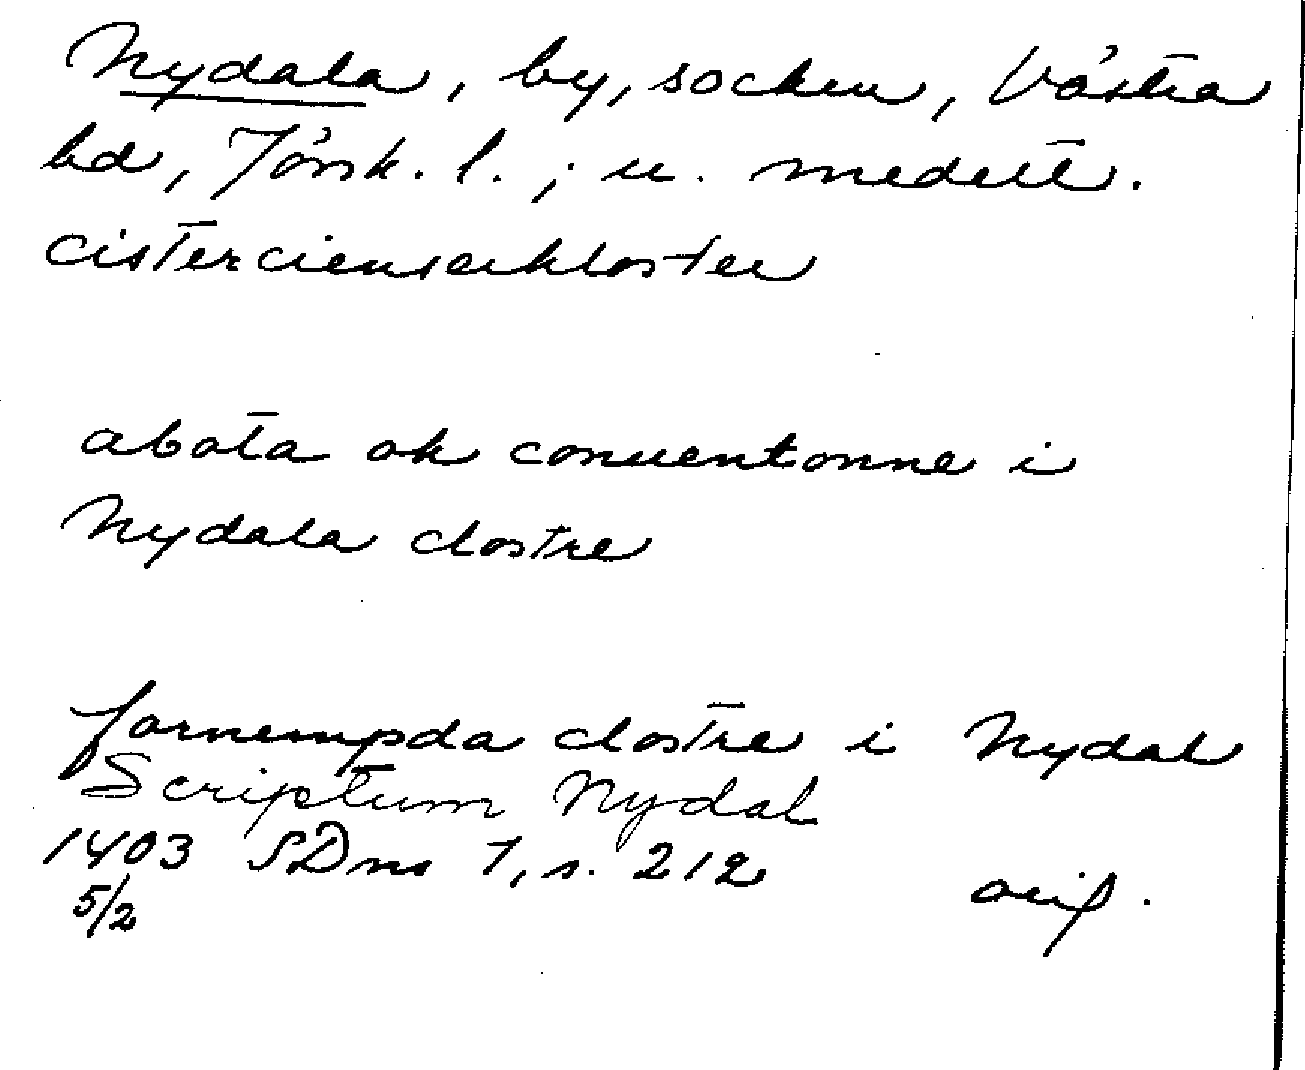 Nydala, by, socken, Västra
hd, Jönk. l. ; u. medelt.
cistercienserkloster
abota ok conuentonne i
Nydala clostre
fornempda clostre i Nydal
Scriptum Nydal
1403 SDns 1, s. 212
5/2 orig.